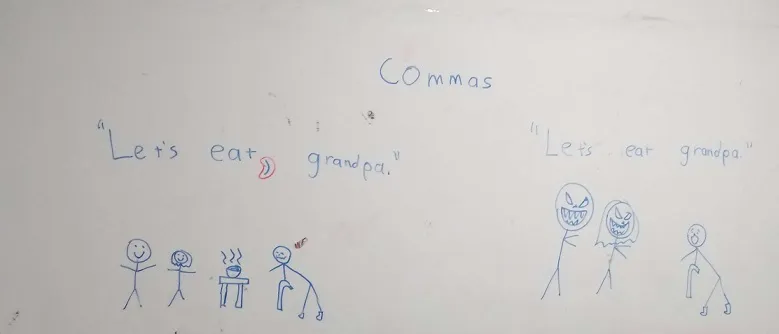 Commas
"Let's eat, grandpa."
"Let's eat grandpa."